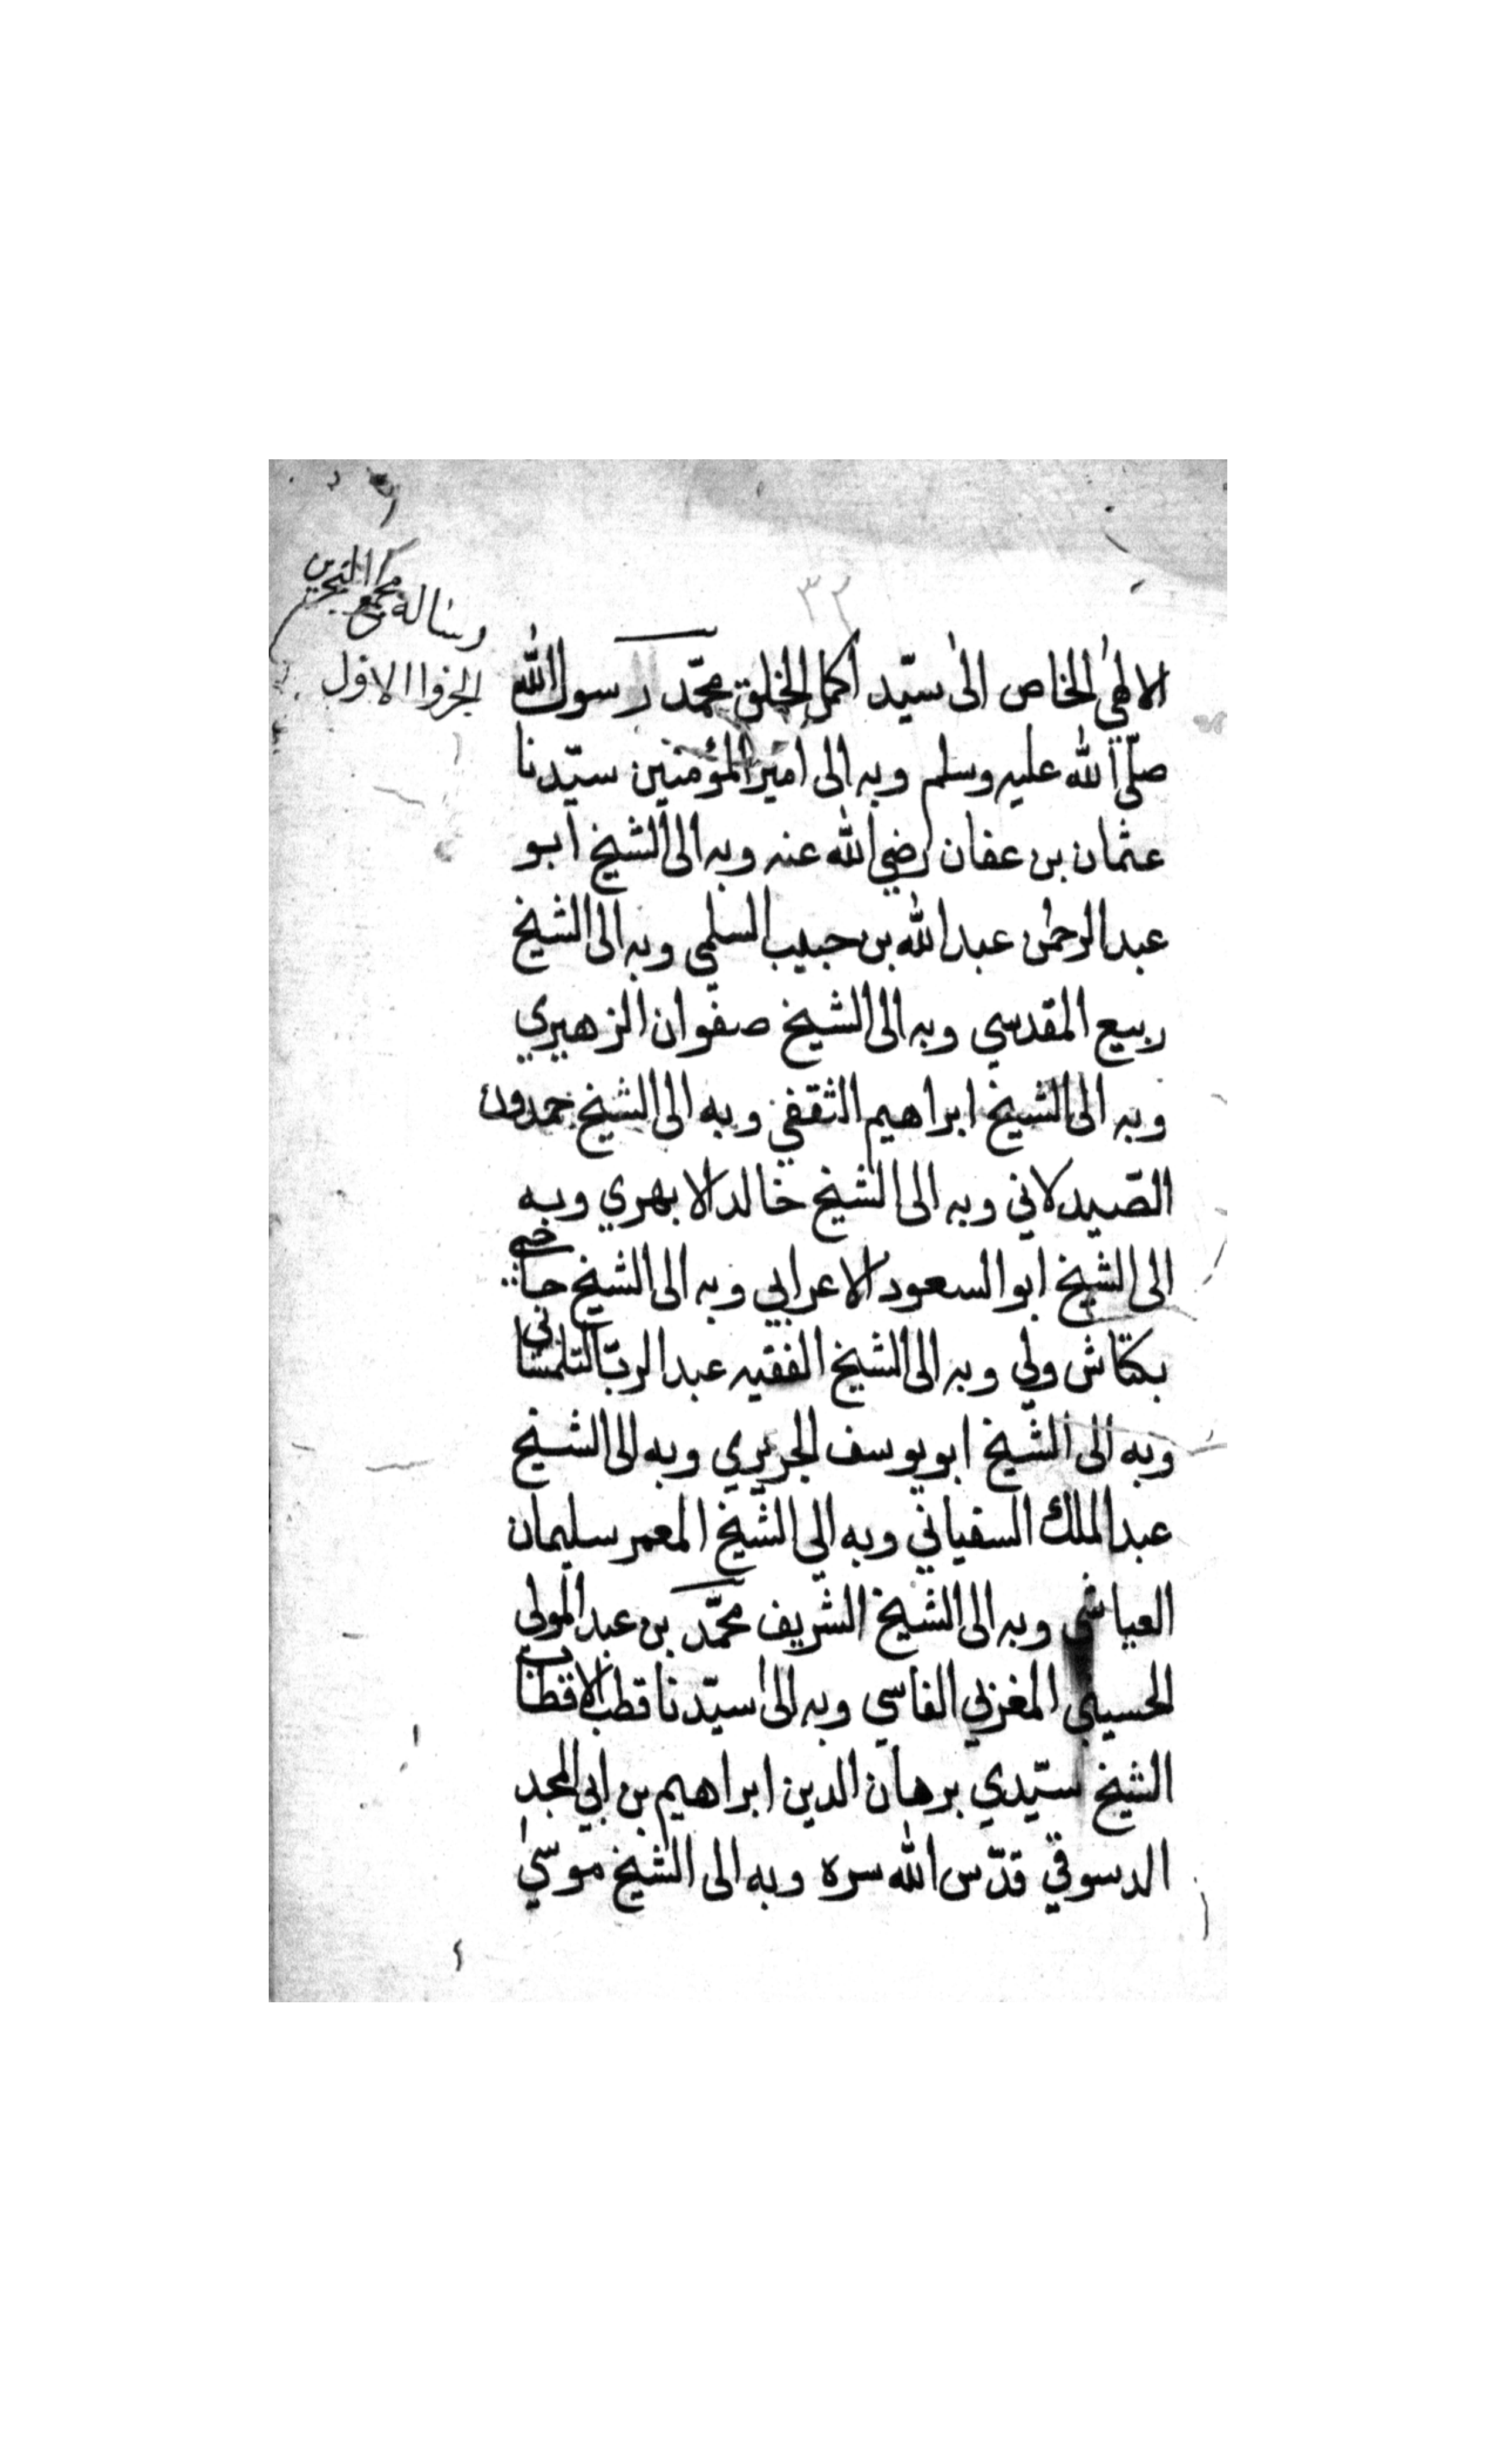 ٣٢
رسالة مجمع البحرين
الجزؤا الاول
الالهي الخاص الى سيّد اكمل الخلق محمّد رسول الله
صلّى الله عليه وسلم وبه الى امير المؤمنين سيّدنا
عثمان بن عفان رضي الله عنه وبه الى الشيخ ابو
عبد الرحمن عبد الله بن حبيب السلمي وبه الى الشيخ
ربيع المقدسي وبه الى الشيخ صفوان الزهيري
وبه الى الشيخ ابراهيم الثقفي وبه الى الشيخ حمدون
الصّيدلاني وبه الى الشيخ خالد الابهري وبه
الى الشيخ ابو السعود الاعرابي وبه الى الشيخ
بكتاش ولي وبه الى الشيخ الفقيه عبد الربّ التلمسانى
وبه الى الشيخ ابو يوسف الجريري وبه الى الشيخ
عبد الملك السفياني وبه الي الشيخ المعمر سليمان
العياشي وبه الى الشيخ الشريف محمّد بن عبد المولى
الحسيني المغربي الفاسي وبه الى سيّدنا قطب الاقطاب
الشيخ سيّدي برهان الدين ابراهيم بن ابي المجد
الدسوقي قدّس الله سره وبه الى الشيخ موسى